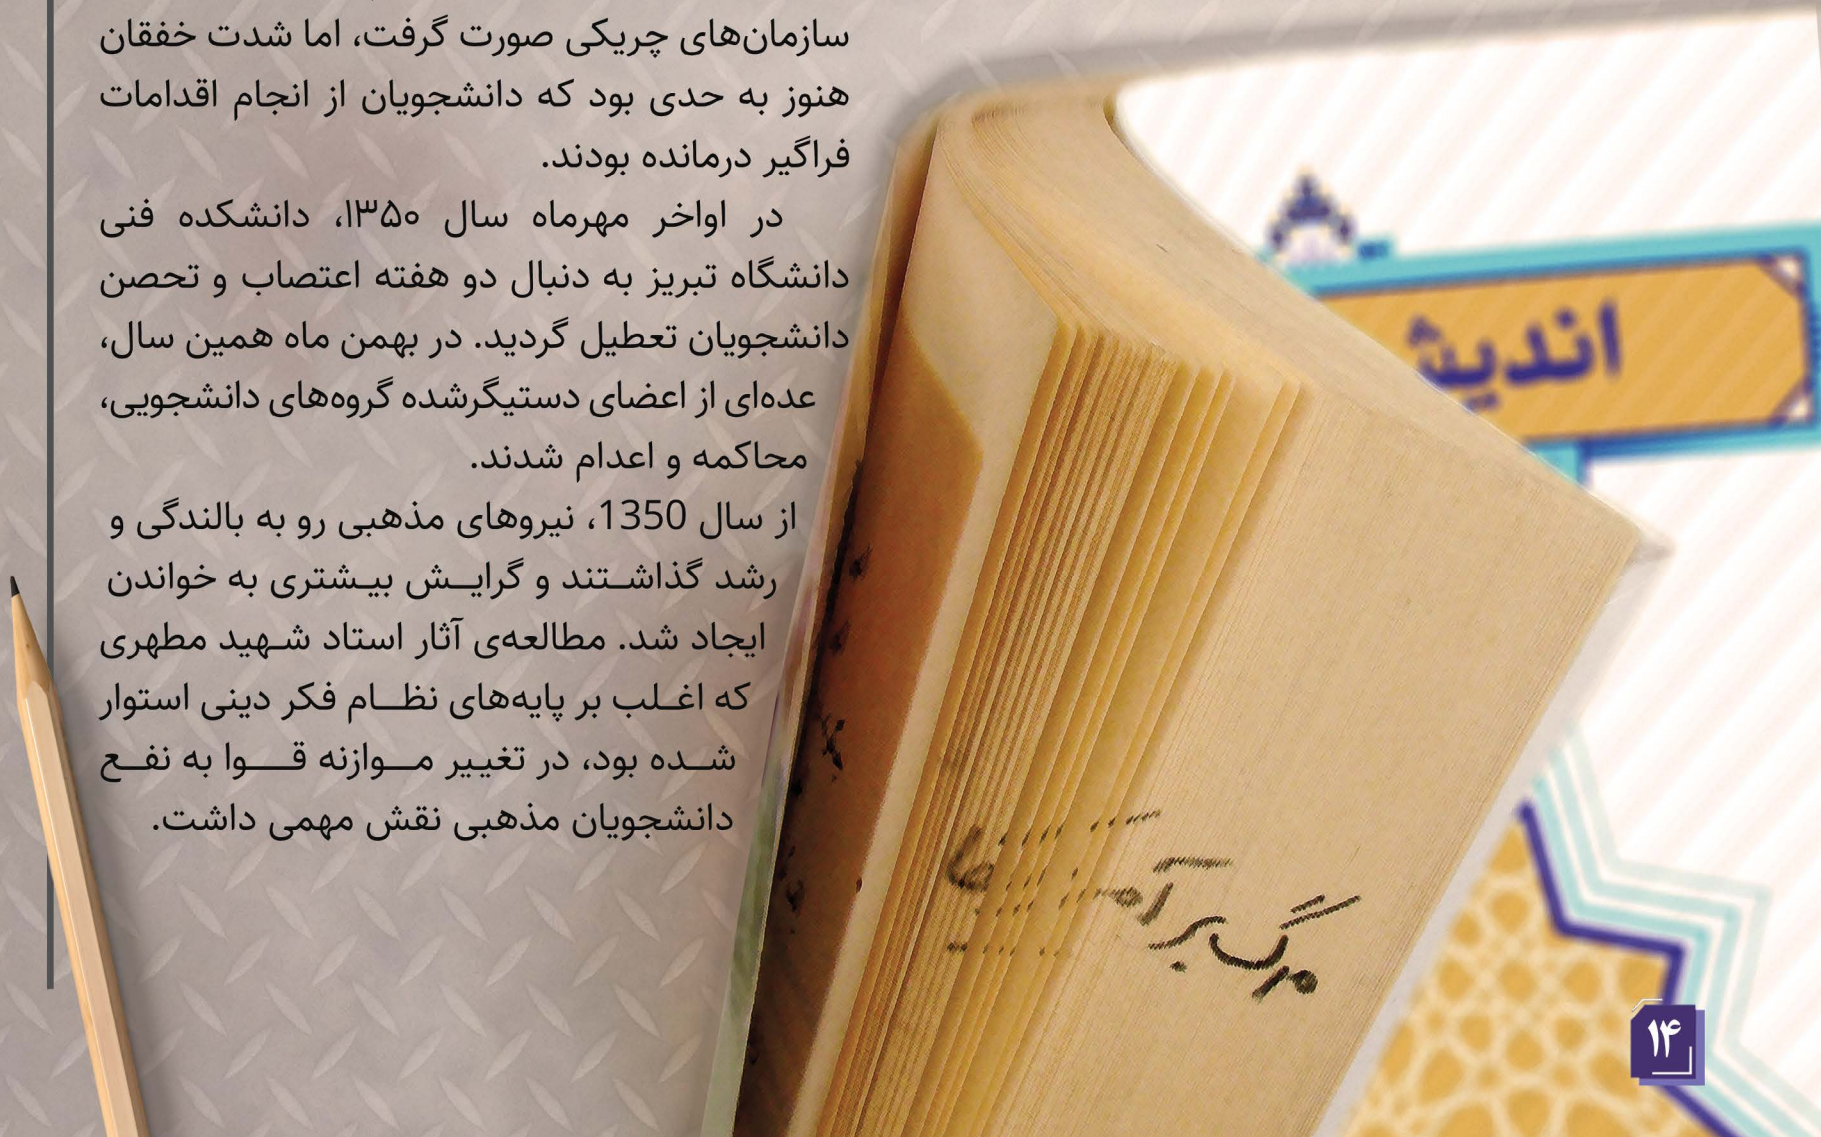 سازمان‌های چریکی صورت گرفت، اما شدت خفقان
هنوز به حدی بود که دانشجویان از انجام اقدامات
فراگیر درمانده بودند.
در اواخر مهرماه سال ۱۳۵۰، دانشکده فنی
دانشگاه تبریز به دنبال دو هفته اعتصاب و تحصن
دانشجویان تعطیل گردید. در بهمن ماه همین سال،
عده‌ای از اعضای دستیگرشده گروه‌های دانشجویی،
محاکمه و اعدام شدند.
از سال 1350، نیروهای مذهبی رو به بالندگی و
رشد گذاشـتند و گرایــش بیـشتری به خواندن
ایجاد شد. مطالعه‌ی آثار استاد شـهید مطهری
که اغـلب بر پایه‌های نظــام فکر دینی استوار
شــده بود، در تغییر مــوازنه قــــوا به نفــع
دانشجویان مذهبی نقش مهمی داشت.
مرگ بر
۱۴